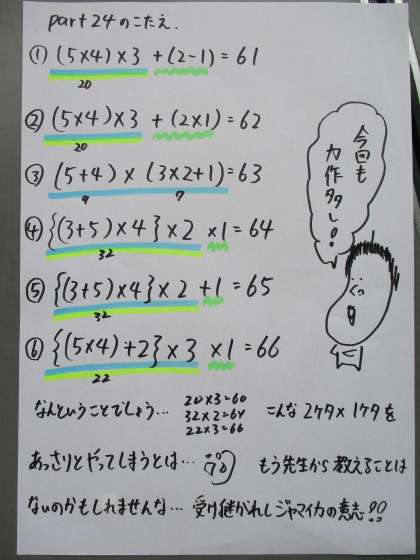 part24のこたえ.
① (5×4)×3 +(2-1)=61
20
② (5×4)×3 +(2×1)=62
20
③ (5+4) × (3×2+1)=63
9 7
④ {(3+5)×4}×2 ×1=64
32
⑤ {(3+5)×4}×2 +1=65
32
⑥ {(5×4)+2}×3 ×1=66
22
今回も
力作多し!!
なんということでしょう…
20×3=60
32×2=64
22×3=66
こんな2ケタ×1ケタを
あっさりとやってしまうとは… もう先生から教えることは
ないのかもしれませんな… 受け継がれしジャマイカの意志!!